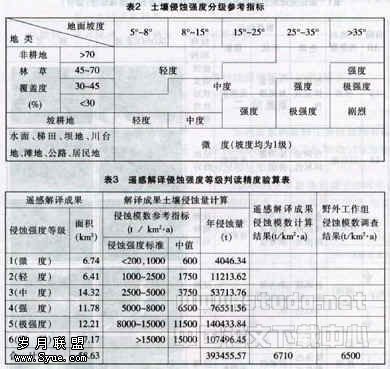 表2 土壤侵蚀强度分级参考指标
地面坡度
地 类
5°~8° 8°~15° 15°~25° 25°~35° >35°
非耕地 >70
林 草 45~70 轻度 强度
覆盖度 30~45 中度 强度 极强度
(%) <30 强度 极强度 剧烈
坡耕地 轻度 中度
水面、梯田、坝地、川台
地、滩地、公路、居民地
微 度(坡度均为1级)
表3 遥感解译侵蚀强度等级判读精度验算表
遥感解译成果 解译成果土壤侵蚀量计算
侵蚀强度等级
面积
(km²)
侵蚀模数参考指标
(t / km²·a)
侵蚀强度标准 中值
年侵蚀量
(t)
遥感解译成果
侵蚀模数计算
结果(t/km²·a)
野外工作组
侵蚀模数调查
结果(t/km²·a)
1(微 度) 6.74 <200,1000 600 4046.34
2(轻 度) 6.41 1000~2500 1750 11213.62
3(中 度) 14.32 2500~5000 3750 53713.76
4(强 度) 11.78 5000~8000 6500 76551.56
5(极强度) 12.21 8000~15000 11500 140433.84
6 7.17 >15000 15000 107496.45
393455.57 6710 6500
岁月联盟
www.Syue.com